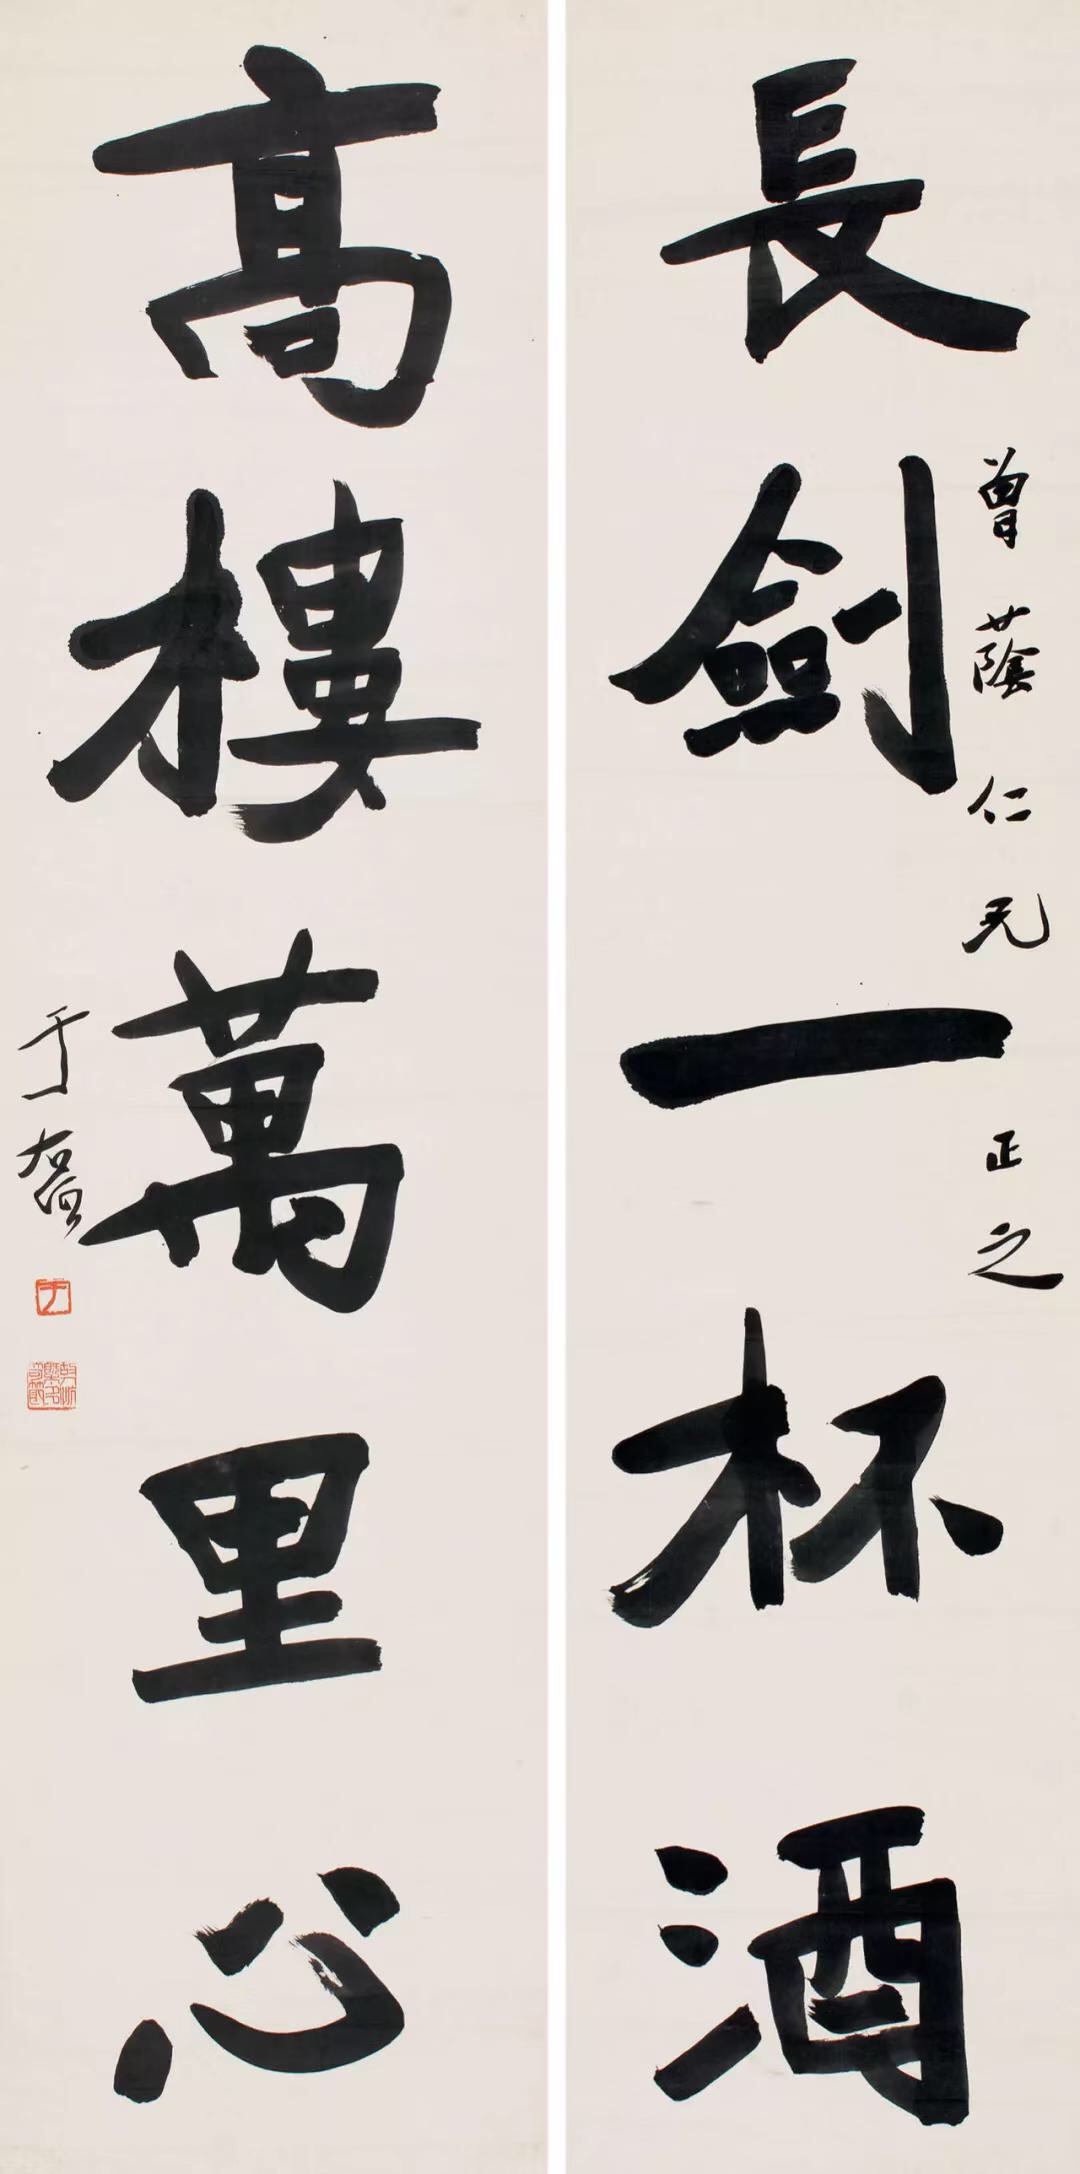 長劍一杯酒
曾蔭仁兄正之
高樓萬里心
于右任